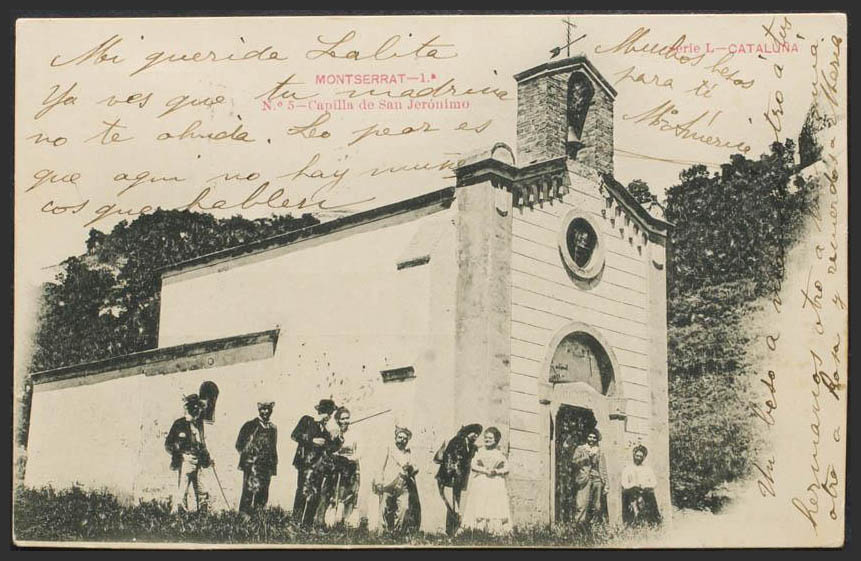 Mi querida Lalita
Ya ves que tu madrina
no te olvida. Lo peor es
que aqui no hay muñe
cos que hablen
MONTSERRAT—1.ª
N.º 5—Capilla de San Jerónimo
Serie I.—CATALUÑA
Muchos besos
para ti
Mª América
Un beso a otro a tus
hermanos otro a
otro a y recuerdos a María